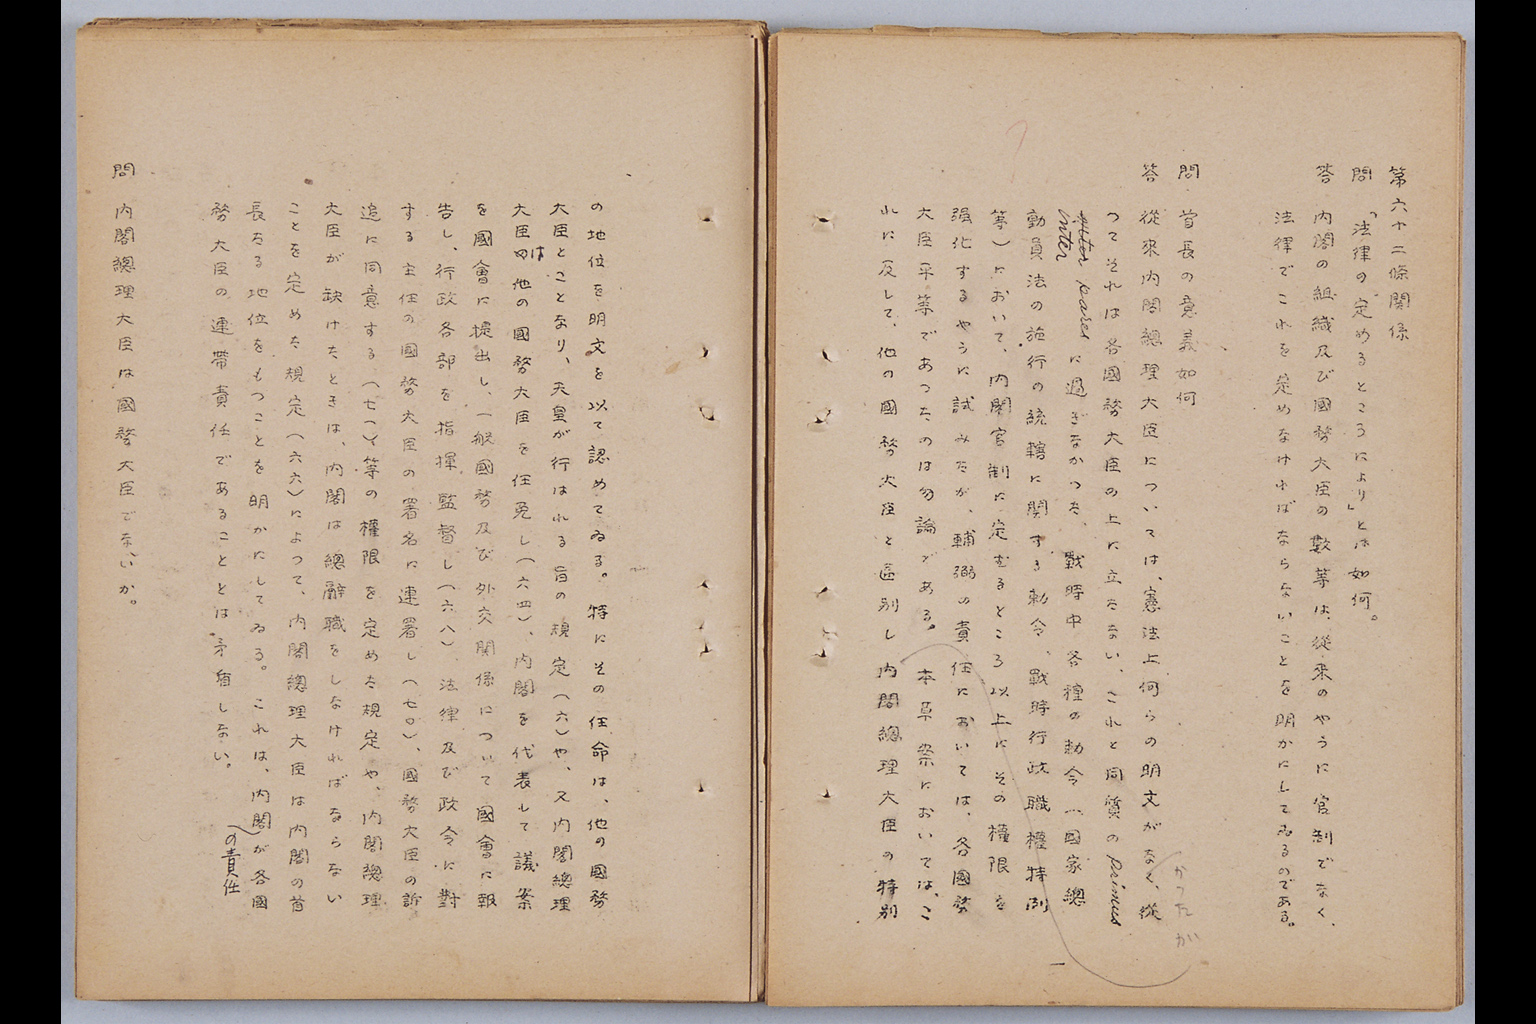 第六十二條関係
問 「法律の定めるところにより」とは如何。
答 内閣の組織及び國務大臣の數等は、從來のやうに官制でなく、
法律でこれを定めなければならないことを明かにしてゐるのである。
問 首長の意義如何
答 從來内閣總理大臣については、憲法上何らの明文がなく、從
かつたが
つてそれは各國務大臣の上に立たない、これと同質の primus
inter pares に過ぎなかつた、戰時中各種の勅令(國家總
動員法の施行の統轄に関する勅令、戰時行政職權特例
等)において、内閣官制に定むるところ以上にその權限を
强化するやうに試みたが、輔弼の責任においては、各國務
大臣平等であつたのは勿論である。本草案においては、こ
れに反して、他の國務大臣と區別し内閣總理大臣の特別
の地位を明文を以て認めてゐる。特にその任命は、他の國務
大臣とことなり、天皇が行はれる旨の規定(六)や、又内閣總理
大臣は他の國務大臣を任免し(六四)、内閣を代表して議案
を國會に提出し、一般國務及び外交関係について國會に報
告し、行政各部を指揮監督し(六八)法律及び政令に對
する主任の國務大臣の署名に連署し(七〇)、國務大臣の訴
追に同意する(七一)等の權限を定めた規定や、内閣總理
大臣が缺けたときは、内閣は總辭職をしなければならない
ことを定めた規定(六六)によつて、内閣總理大臣は内閣の首
長たる地位をもつことを明かにしてゐる。これは、内閣が各國
の責任
務大臣の連帶責任であることとは矛盾しない。
問 内閣總理大臣は國務大臣でないか。